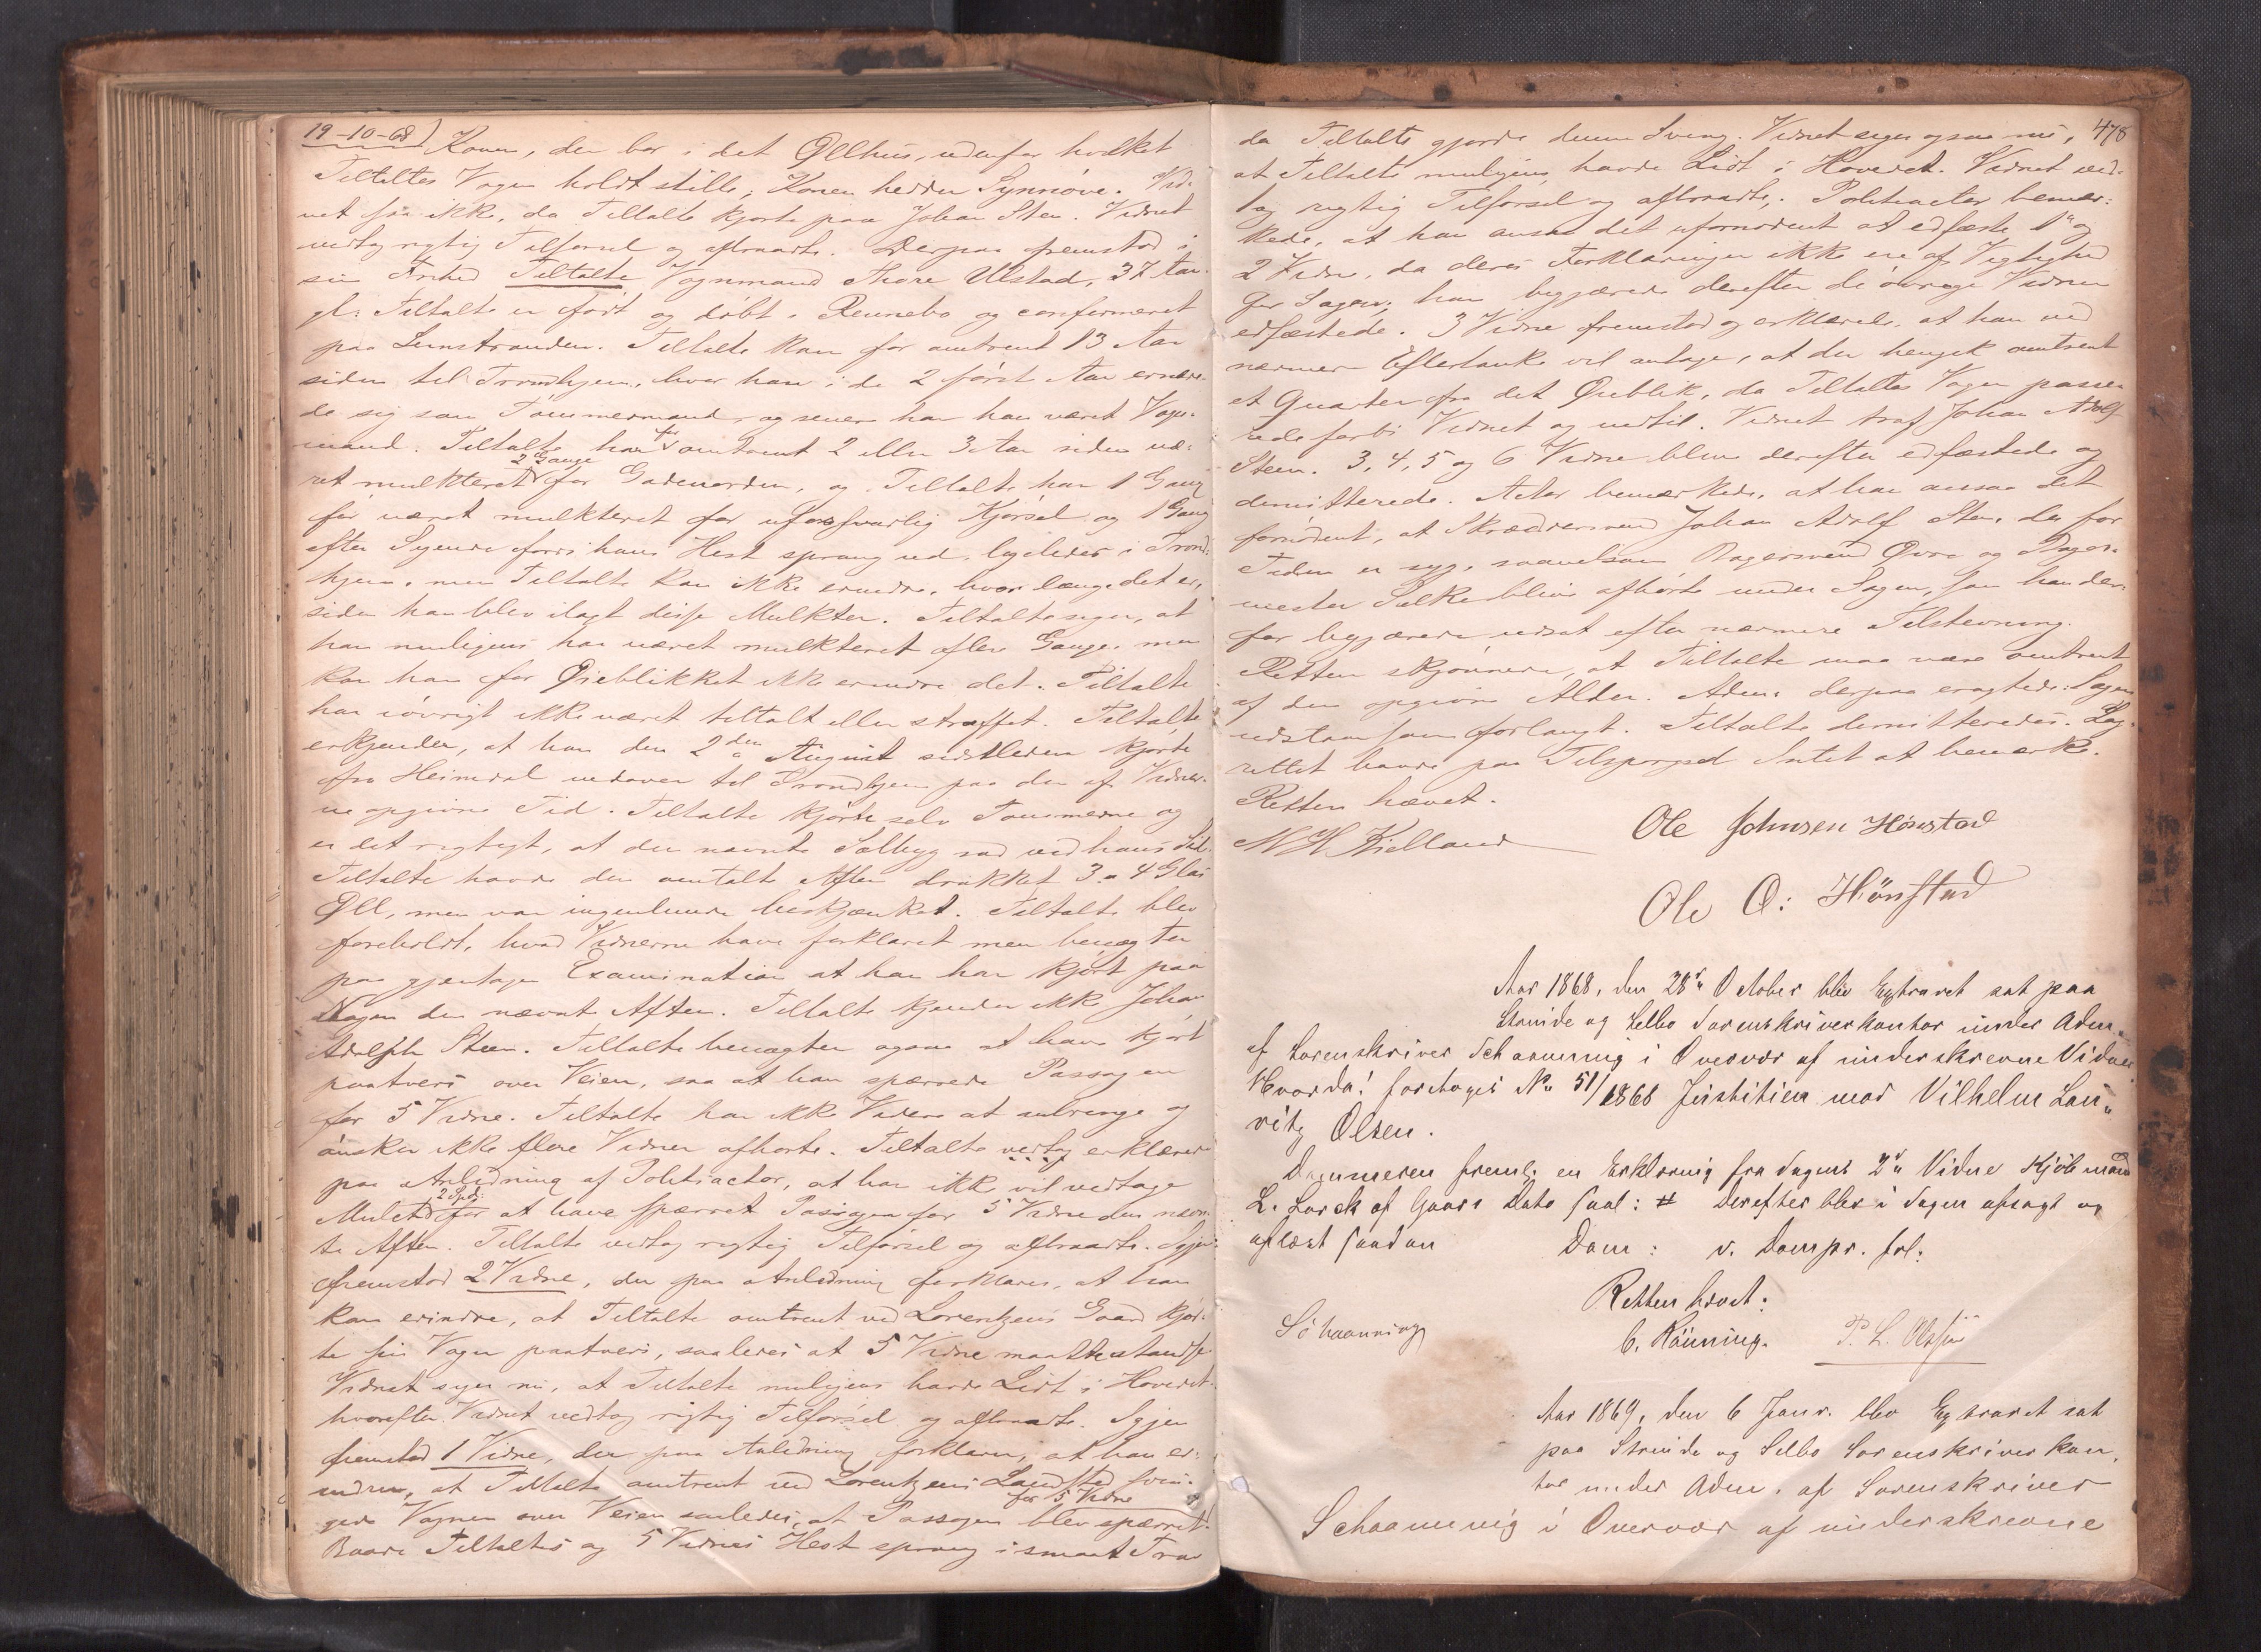 19-10-68) Konen, der bor i det Øllhus, udenfor hvilket
Tiltaltes Vogn holdt stille; Konen hedder Synnöve. Vid-
net saa ikke, da Tiltalte kjørte paa Johan Sten. Vidnet
vedtog rigtig Tilførsel og aftraadte. Derpaa fremstod i
sin Frihed Tiltalte Vognmand Thore Ulstad, 37 Aar
gl: Tiltalte er født og döbt i Rennebo og confirmeret
paa Leinstranden. Tiltalte kom for omtrent 13 Aar
siden til Trondhjem, hvor han i de 2 först Aar ernære-
de sig som Tömmermand, og senere har han været Vogn-
mand. Tiltalte har for omtrent 2 eller 3 Aar siden væ-
ret mulkteret 2 Gange for Gadeuorden, og Tiltalte har 1 Gang
för været mulkteret for uforsvarlig Kjørsel og 1 Gang
efter Sigende fordi hans Hest sprang ud, ligeledes i Trond-
hjem, men Tiltalte kan ikke erindre, hvor længe det er,
siden han blev ilagt disse Mulkter. Tiltalte siger, at
han muligens har været mulkteret aflere Gange, men
kan han for Øieblikket ikke erindre det. Tiltalte
har iövrigt ikke været tiltalt eller straffet. Tiltalte
erkjender, at han den 2den August sidstleden kjørte
fra Heimdal nedover til Trondhjem paa den af Vidner-
ne opgivne Tid. Tiltalte kjørte selv Tömmerne og
er det rigtigt, at den nævnte Solbyg sad ved hans Side.
Tiltalte havde den omtalte Aften drukket 3 a 4 Glas
Øll, men var ingenlunde beskjænket. Tiltalte blev
foreholdt, hvad Vidnerne have forklaret men benægter
paa gjentagen Examination at han har kjørt paa
Nogen den nævnte Aften. Tiltalte kjender ikke Johan
Adolph Steen. Tiltalte benægter ogsaa at have kjørt
paatvers over Veien, saa at han spærrede Passagen
for 5 Vidne. Tiltalte har ikke Videre at anbringe og
ønsker ikke flere Vidner afhørte. Tiltalte vedtog erklærer
paa Anledning af Politiactor, at han ikke vil vedtage
Mulct 2 Spd: for at have spærret Passagen for 5 Vidne den nævn-
te Aften. Tiltalte vedtog rigtig Tilførsel og aftraadte. Igjen
fremstod 2 Vidne, der paa Anledning forklarer, at han
kan erindre, at Tiltalte omtrent ved Lorentzens Gaard kjør-
te sin Vogn paatvers, saaledes at 5 Vidne maatte standse
Vidnet siger nu, at Tiltalte muligens havde Lidt i Hovedet.
hvorefter Vidnet vedtog rigtig Tilførsel og aftraadte. Igjen
fremstod 1 Vidne, der paa Anledning forklarer, at han er-
indrer, at Tiltalte omtrent ved Lorentzens Landsted svin-
gede Vognen over Veien saaledes, at Passagen for 5 Vidne blev spærret.
Baade Tiltaltes og 5 Vidnes Hest sprang i smaat Trav
478
da Tiltalte gjorde denne Sving. Vidnet siger ogsaa nu,
at Tiltalte muligens havde Lidt i Hovedet. Vidnet ved-
tog rigtig Tilførsel og aftraadte. Politiactor bemær-
kede, at han ansaa det ufornødent at edfæste 1ste og
2 Vidne, da deres Forklaringer ikke ere af Vigtighed
for Sagen; han begjærede derefter de øvrige Vidner
edfæstede. 3 Vidne fremstod og erklærede, at han ved
nærmere Eftertanke vil antage, at der hengik omtrent
et Quarter fra det Øieblik, da Tiltaltes Vogn passe-
rede forbi Vidnet og indtil Vidnet traf Johan Adolf
Steen. 3, 4, 5 og 6 Vidne blev derefter edfæstede og
demitterede. Actor bemærkede, at han ansaa det
fornødent, at Skræddersvend Johan Adolf Sten, der for
Tiden er syg, saavelsom Bagersvend Övre og Bager-
mester Sølke blive afhørte under Sagen, som han der-
for begjærede udsat efter nærmere Tilstevning.
Retten skjønnede, at Tiltalte maa være omtrent
af den opgivne Alder. Adm: derpaa eragtede: Sagen
udstaar som forlangt. Tiltalte demitteredes. Lag-
rettet havde paa Tilspørgsel Intet at bemærke.
Retten hævet.
M H Kielland
Ole Johnsen Hönstad
Ole O: Hönstad
Aar 1868, den 28de October blev Extraret sat paa
Strinde og Selbo Sorenskriverkontor under Adm.
af Sorenskriver Schaanning i Overvær af underskrevne Vidner
Hvorda! foretoges No 51/1868 Justitien mod Vilhelm Lau-
ritz Olsen.
Dommeren freml. en Erklæring fra Sagens 2det Vidne Kjøbmand
L. Lorck af Gaars Dato saal: # Derefter blev i Sagen afsagt og
aflæst saadan
Dom: v. Dompr. fol:
Retten hævet:
Schaanning
C. Rönning. P. L. Olsen
Aar 1869, den 6 Janr. blev Extraret sat
paa Strinde og Selbo Sorenskriverkon-
tor under Adm. af Sorenskriver
Schaanning i Overvær af underskrevne